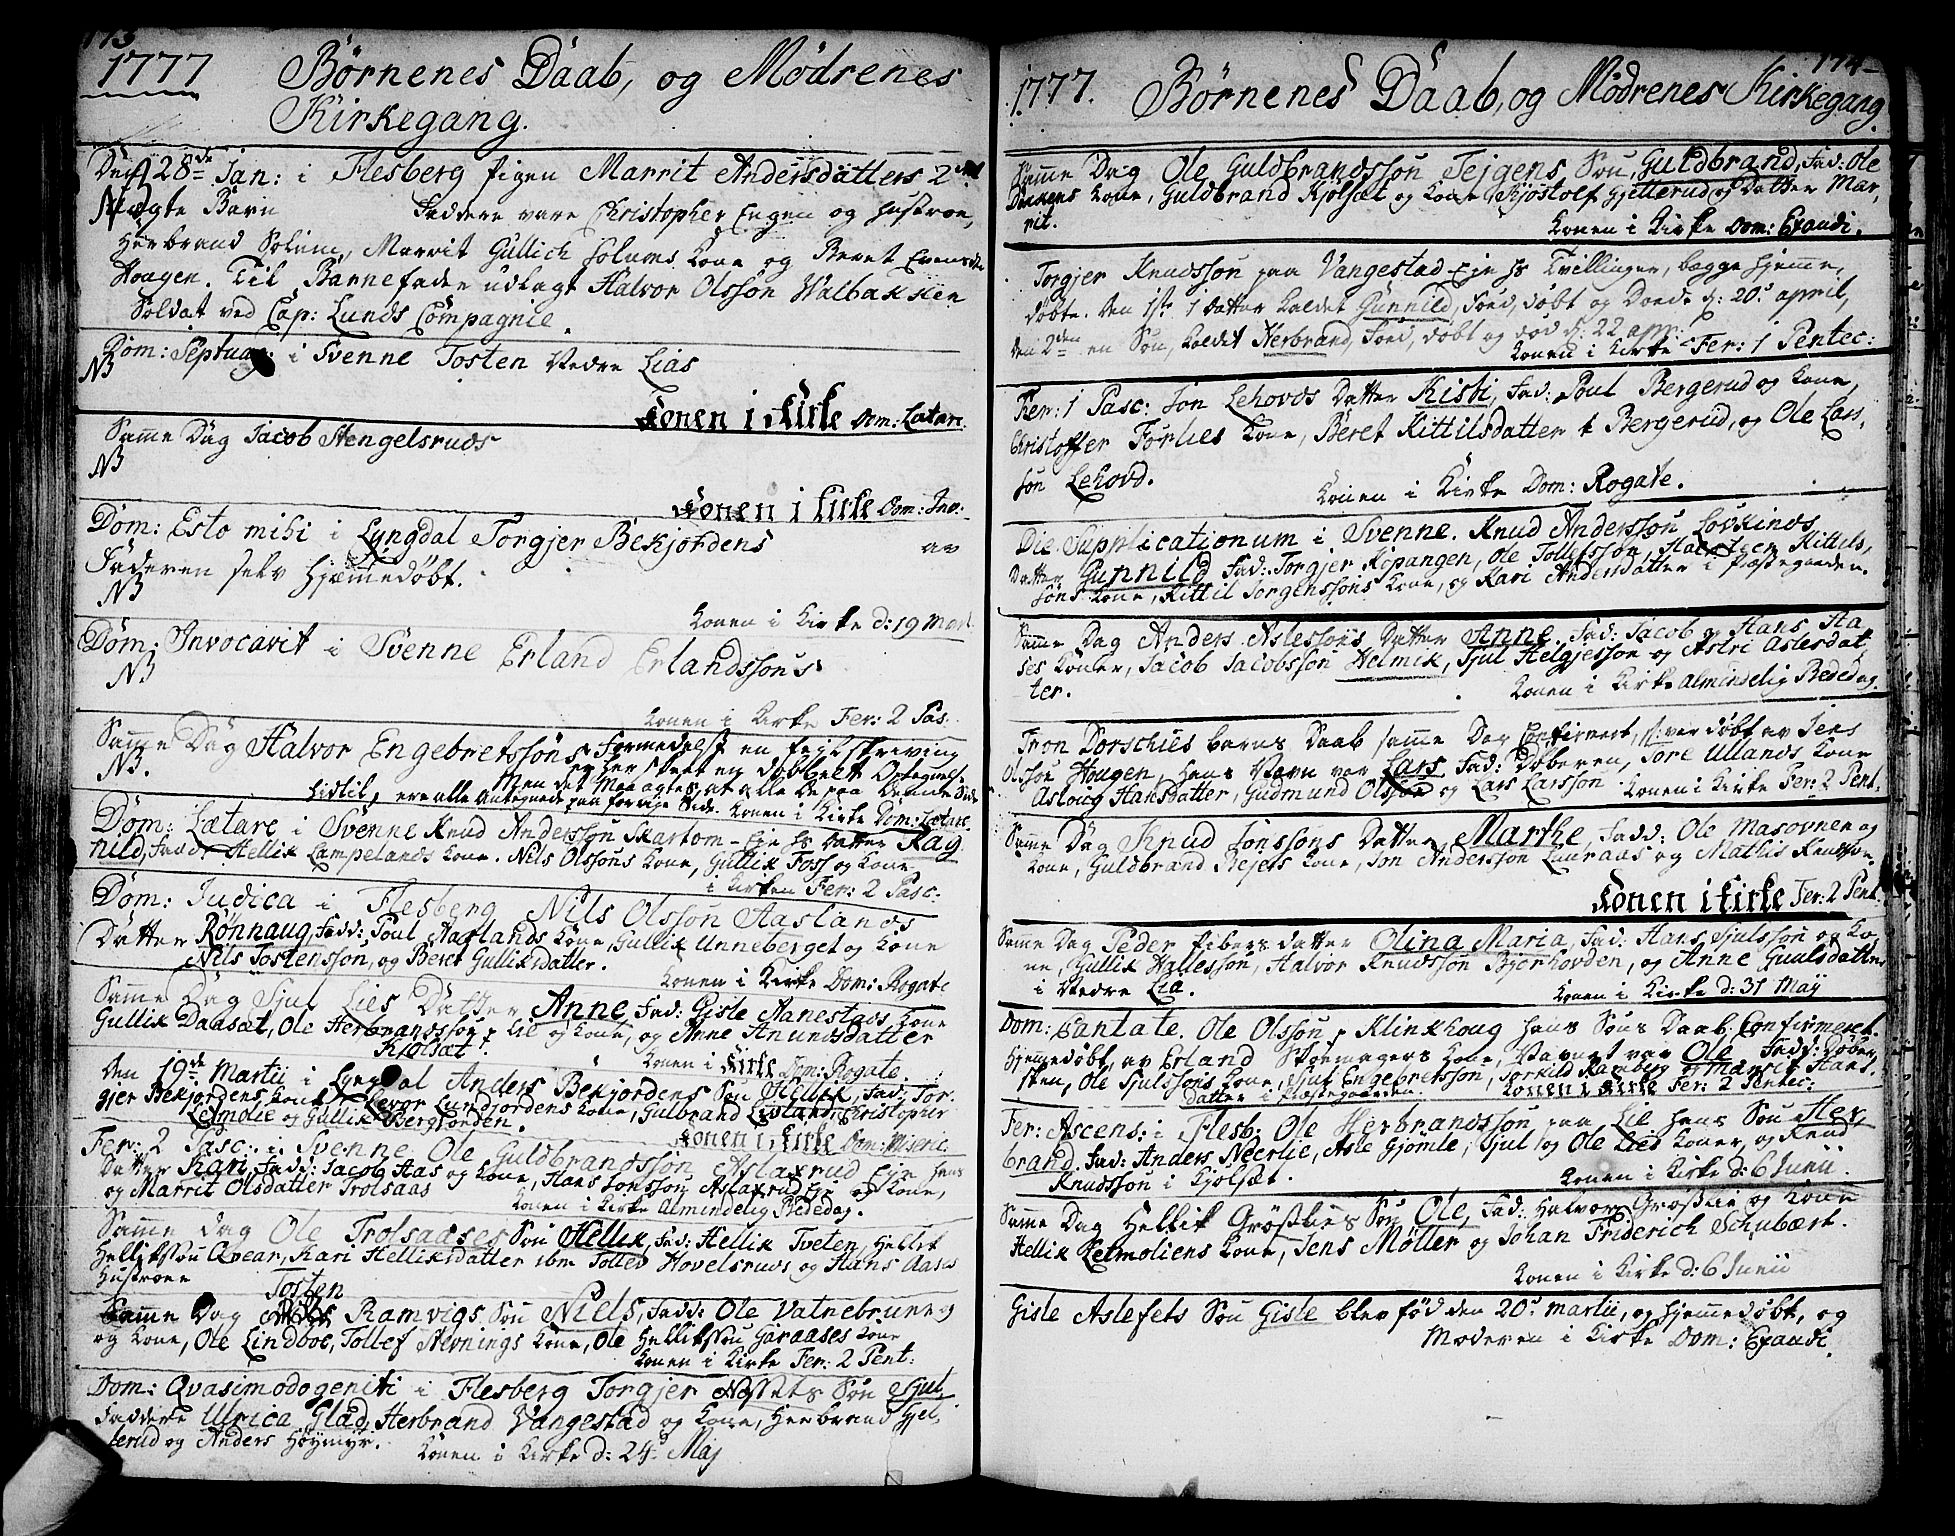 173
1777 Börnenes Daab, og Mödrenes
Kirkegang.
Den 28de Jan: i Flesberg pigen Marrit Andersdatters 2det
NB Uægte Barn Faddere vare Christopher Engen og hustroe,
Herbrand Solum, Marrit Gullich Solums Kone og Beret Evensdtr
Hougen. Til Barnefader udlagt Halvor Olsson Walbakken
Soldat ved Cap: Lunds Compagnie.
Dom: Septuag: i Svenne Tosten Vedre Lias
NB
Konen i Kirke Dom: Lætare.
Samme Dag Jacob Stengelsruds
NB
Konen i Kirke Dom: Inv:
Dom: Esto mihi i Lyngdal Torgjer Bekjordens av
Faderen selv hjemmedøbt.
NB
Konen i Kirke d: 19 Mart.
Dom: Invocavit i Svenne Erland Erlandssons
NB
Konen i Kirke Fer: 2 Pas.
Samme Dag Halvor Engebretssöns Formedelst en feilskriving
NB. er her skeet en dobbelt Optegnelse
Men det Mærkes, at alle de paa denne Side
hidtil, ere alle antegnede paa forrige Side. Konen i Kirke Dom: Lætare.
Dom: Lætare i Svenne Knud Andersson Skartom-Eje hs Datter Rag
nild, Fadd: Hellik Lampelands Kone, Nils Olssons Kone, Gullik Foss og Kone
i Kirken Fer: 2 Pasc:
Dom: Judica i Flesberg Nils Olsson Aaslands
Datter Rönnaug, Fadd: Poul Aaslands Kone, Gullik Unneberget og Kone
Nils Tostensson, og Beret Gulliksdatter.
Konen i Kirke Dom: Rogate
Samme Dag Sjul Lies Datter Anne, Fad: Gisle Aanestads Kone
Gullik Daasæt, Ole Herbrandsson p Lie og Kone, og Anne Anundsdatter
Kjolsæt.
Konen i Kirke Dom: Rogate.
Den 19de Martii i Lyngdal Anders Bekjordens Son Hellik, Fad: Tor-
gjer Bekjordens Kone, Halvor Lundjordens Kone, Gulbrand Livland, Christopher
Lesmolie og Gullik Bergjorden.
Konen i Kirke Dom: Miseric.
Fer: 2 Pasc: i Svenne Ole Guldbrandsson Aslaxrud Eje hans
Datter Kari, Fadd: Jacob Aas og Kone, Hans Jonsson Aslaxrud Eje og Kone,
og Marrit Olsdatter Trolsaas
Konen i Kirke Almindelig Bededag.
Samme dag Ole Trolsaases Son Hellik, Fad: Hellik Tveten, Hellek
Hellikssøn Qvear, Kari Helliksdatter ibm Tollef Hovelsruds og Hans Aases
Hustroer
Tosten
Samme Dag Ramvigs Son Niels, Fadd: Ole Vatnebrune og
og Kone, Ole Lindboe, Tollef Stevnings Kone, Ole Hellikssøn Garaases Kone
Konen i Kirke Fer: 2 Pent:
Dom: Qvasimodogeniti i Flesberg Torgjer Son Sjul,
Faddere Ulrica Glad, Herbrand Vangestad og Kone, Herbrand Gjel-
terud og Anders Höymyr.
Konen i Kirke d: 24 Maj
174
1777. Börnenes Daab, og Mödrenes Kirkegang.
Samme Dag Ole Guldbrandsson Tejgens Son Guldbrand, Fad: Ole
Kone, Guldbrand Kjolsæt og Kone Kjöstolf Gjelterud og Datter Mar-
rit.
Konen i Kirke Dom: Exaudi.
Torgjer Knudsson paa Vangestad Eje hs Tvillinger, begge hjemme-
døbte. Den 1ste 1 datter kaldet Gunnild, Föd, döbt og Döde d: 20de april,
Den 2den en Son, kaldet Herbrand, Föd, döbt og död d: 22 apr.
Konen i Kirke Fer: 1 Pentec:
Fer: 1 Pasc: Jon Lehovds Datter Kisti, Fad: Poul Bergerud og Kone,
Christoffer Forlies Kone, Beret Kittilsdatter t Bergerud, og Ole Lars-
son Lehovd.
Konen i Kirke Dom: Rogate.
Die Supplicationum i Svenne. Knud Andersson Lovkinds
Datter Gunnild, Fad: Torgjer Kopangen, Ole Tollefsson, Kittels-
söns Kone, Kittil Torgenssons Kone, og Kari Andersdatter i Præstegaarden.
Samme Dag Anders Aslessons Datter Anne. Fad: Jacob og Hans Aa-
ses Koner, Jacob Jacobsson Helmik, Sjul Helgjesson og Astri Aslesdat-
ter.
Konen i Kirke Almindelig Bededag.
Tron Dorschies barns Daab samme Dag Confirmert, er döbt av Jens
Olsson Hougen, Hans Navn var Lars Fad: Döberen, Tore Ullands Kone
Asloug Hansdatter, Gudmund Olsson og Lars Larsson
Konen i Kirke Fer: 2 Pent.
Samme Dag Knud Jonssons Datter Marthe, Fadd: Ole Masovnen og
Kone, Guldbrand Rejers Kone, Jon Andersson Lauraas og Mathis Knudsson.
Konen i Kirke Fer: 2 Pent.
Samme Dag Peder Fibers datter Olina Maria, Fad: Hans Sjulsson og Ko-
ne, Gullik Hallesson, Halvor Knudsson Bjorhovden, og Anne Guulsdatter
i Vedre Lia.
Konen i Kirke d: 31 Maij
Dom: Cantate. Ole Olsson p Klinkhoug hans Sons Daab Confirmeret.
Hjemmedöbt, av Erland Skomagers Kone, Navnet var Ole. Fadd: Döber-
sken, Ole Sjulssons Kone, Sjul Engebretsson, Torkild Ramberg og Marrit Hans-
datter i Præstegaarden.
Konen i Kirke Fer: 2 Pentec:
Fer: Ascens: i Flesb: Ole Herbrandsson paa Lie hans Son Her-
brand, Fad: Anders Neerlie, Asle Gjömle, Sjul og Ole Lies Koner, og Knud
Knudsson i Kjolsæt.
Konen i Kirke d: 6 Junii.
Samme Dag Hellik Grösslies Son Ole, Fad: Halvor Grösslie og Kone
Hellik Lesmoliens Kone, Jens Møller og Johan Friderich Schubært.
Konen i Kirke d: 6 Junii
Gisle Aslefets Son Gisle blev föd den 20de martii, og hjemmedöbt, og
Moderen i Kirke Dom: Exaudi.